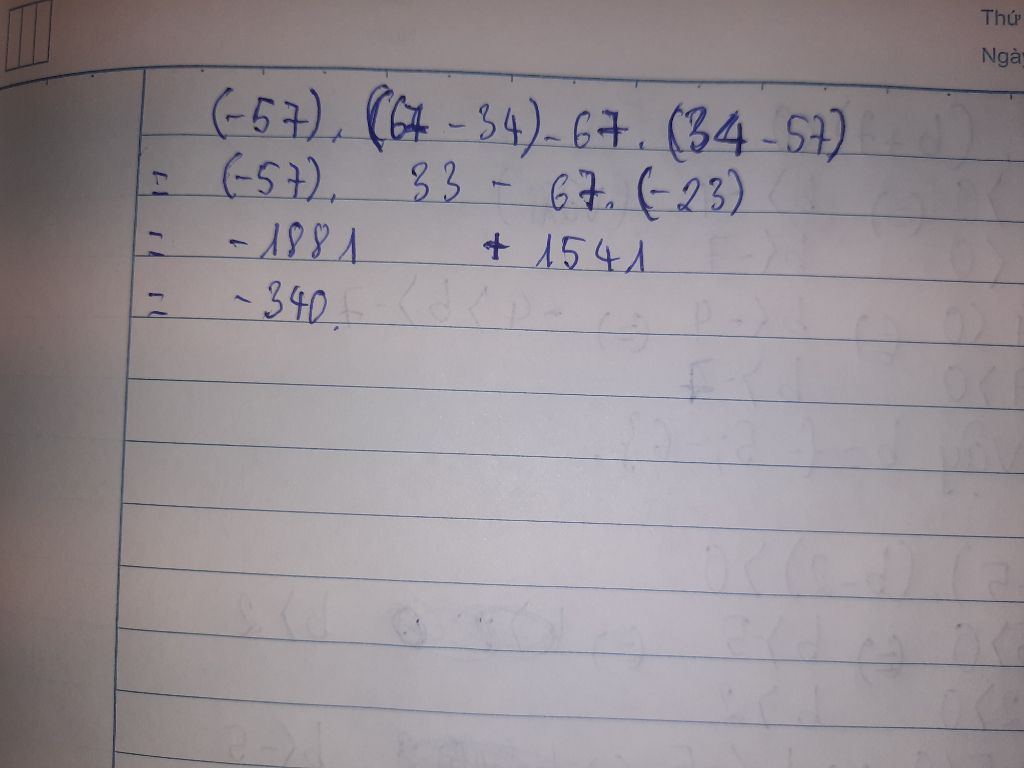 Thứ
Ngày
(-57). (67 - 34) - 67. (34 - 57)
= (-57). 33 - 67. (-23)
= -1881 + 1541
= -340.